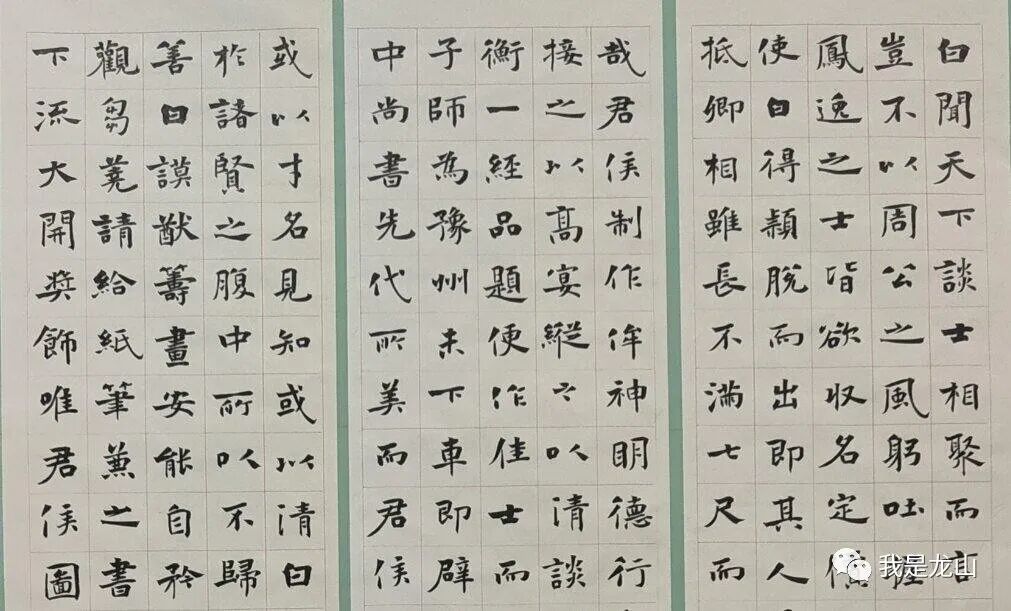 白聞天下談士相聚而言
豈不以周公之風躬吐
鳳逸之士皆欲收名定
使白得穎脫而出即其人
抵卿相雖長不滿七尺而
哉君侯制作侔神明德行
接之以高宴縱之以清談
衡一經品題便作佳士而
子師為豫州未下車即辟
中尚書先代所美而君侯
或以才名見知或以清白
於諸賢之腹中所以不歸
善曰謨猷籌畫安能自矜
觀芻蕘請給紙筆兼之書
下流大開獎飾唯君侯圖
我是龙山